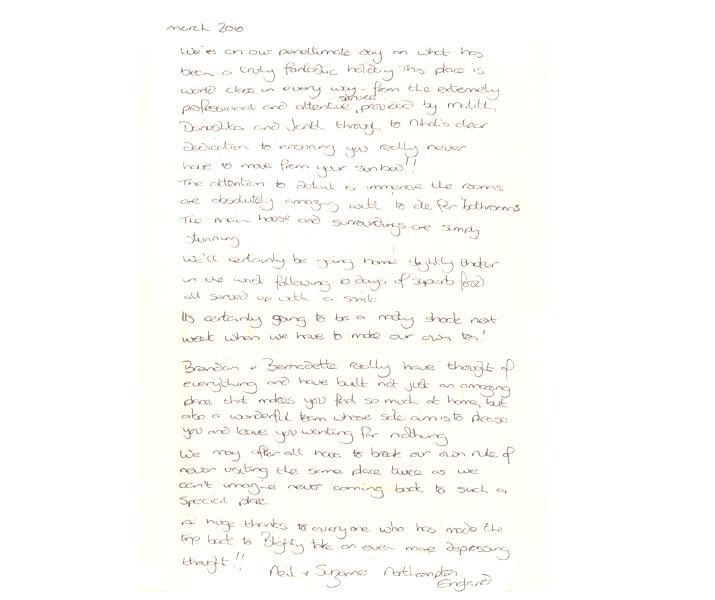 march 2010
We're on our penultimate day on what has
been a truly fantastic holiday This place is
world class in every way - from the extremely
professional and attentive service, provided by malith,
Danushka and Janth through to Nihal's clear
dedication to ensuring you really never
have to move from your sunbed!!
The attention to detail is immense the rooms
are absolutely amazing with 'to die for' bathrooms
The main house and surroundings are simply
stunning
We'll certainly be going home slightly
in the waist following 10 days of superb food
all served up with a smile
Its certainly going to be a nasty shock next
week when we have to make our own tea!
Brendan + Bernadette really have thought of
everything and have built not just an amazing
place that makes you feel so much at home, but
also a wonderful team whose sole aim is to please
you and leave you wanting for nothing
We may after all have to break our own rule of
never visiting the same place twice as we
can't imagine never coming back to such a
special place.
A huge thanks to everyone who has made the
trip back to Blighty take on even more depressing
thought!!
Neil + Suzanne Northampton
England